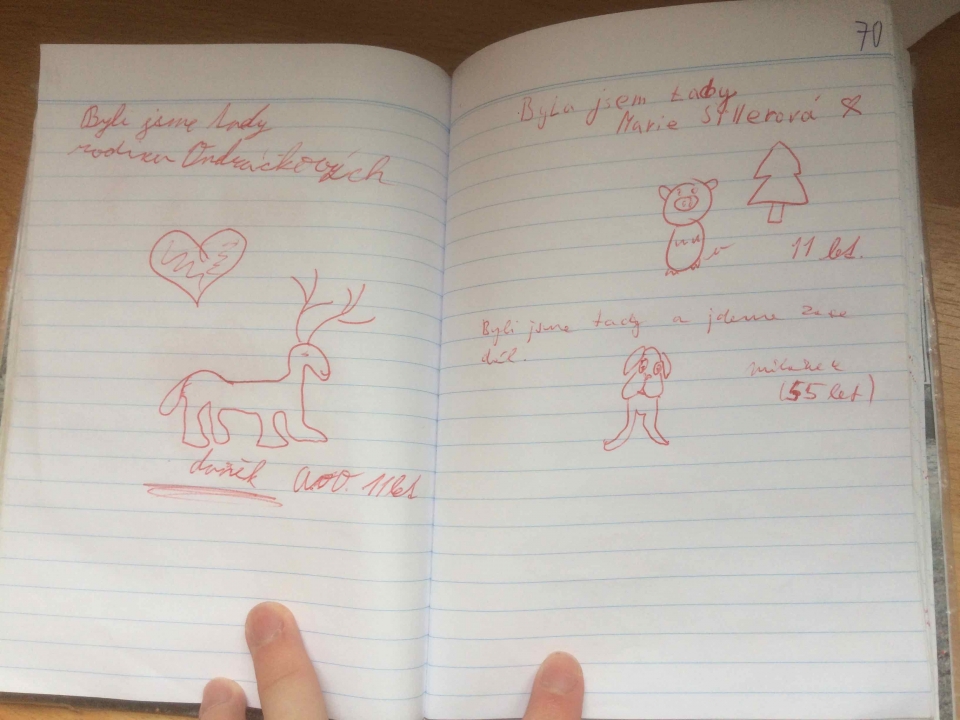 Byli jsme tady
rodina Ondráčkových
daněk A.O. 11 let
70
Byla jsem tady
Marie Stllerová
11 let.
Byli jsme tady a jdeme zase
dál.
(55 let)